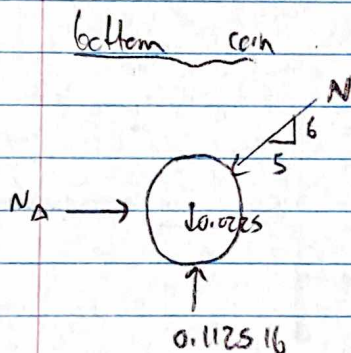 bottom coin
N
6
5
N_A
0.0225
0.1125 lb